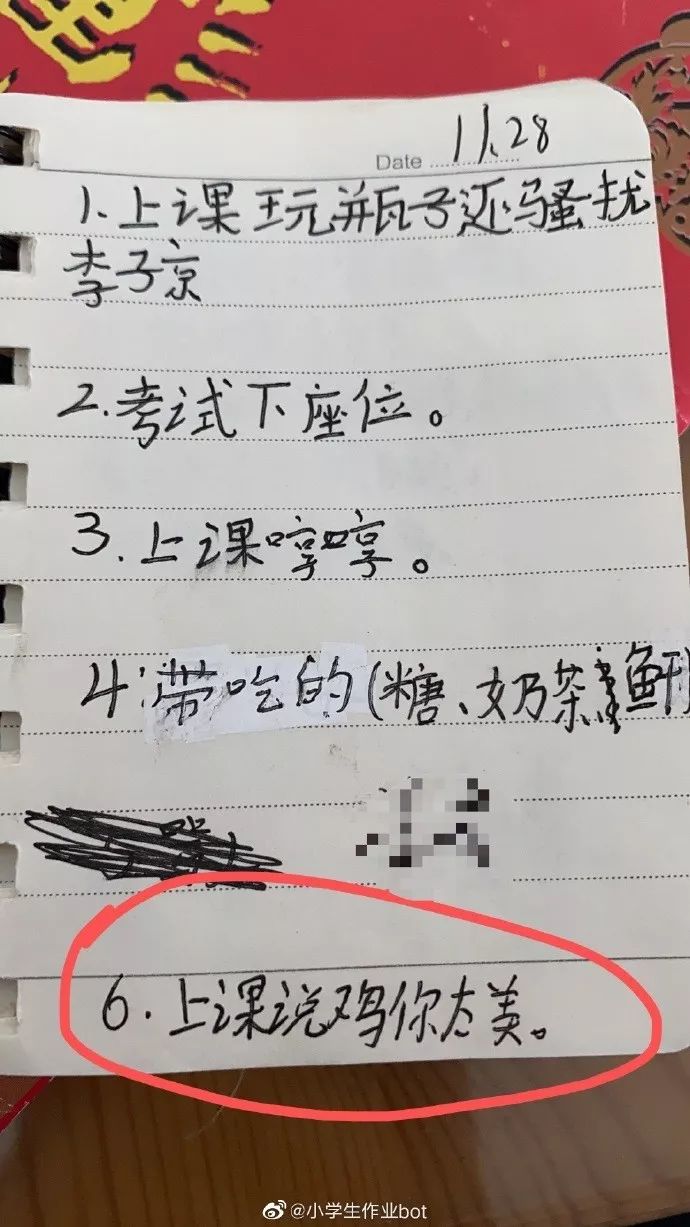 Date 11.28
1.上课玩瓶子还骚扰
李子京
2.考试下座位。
3.上课哼哼。
4.带吃的(糖、奶茶
6.上课说鸡你太美。
@小学生作业bot